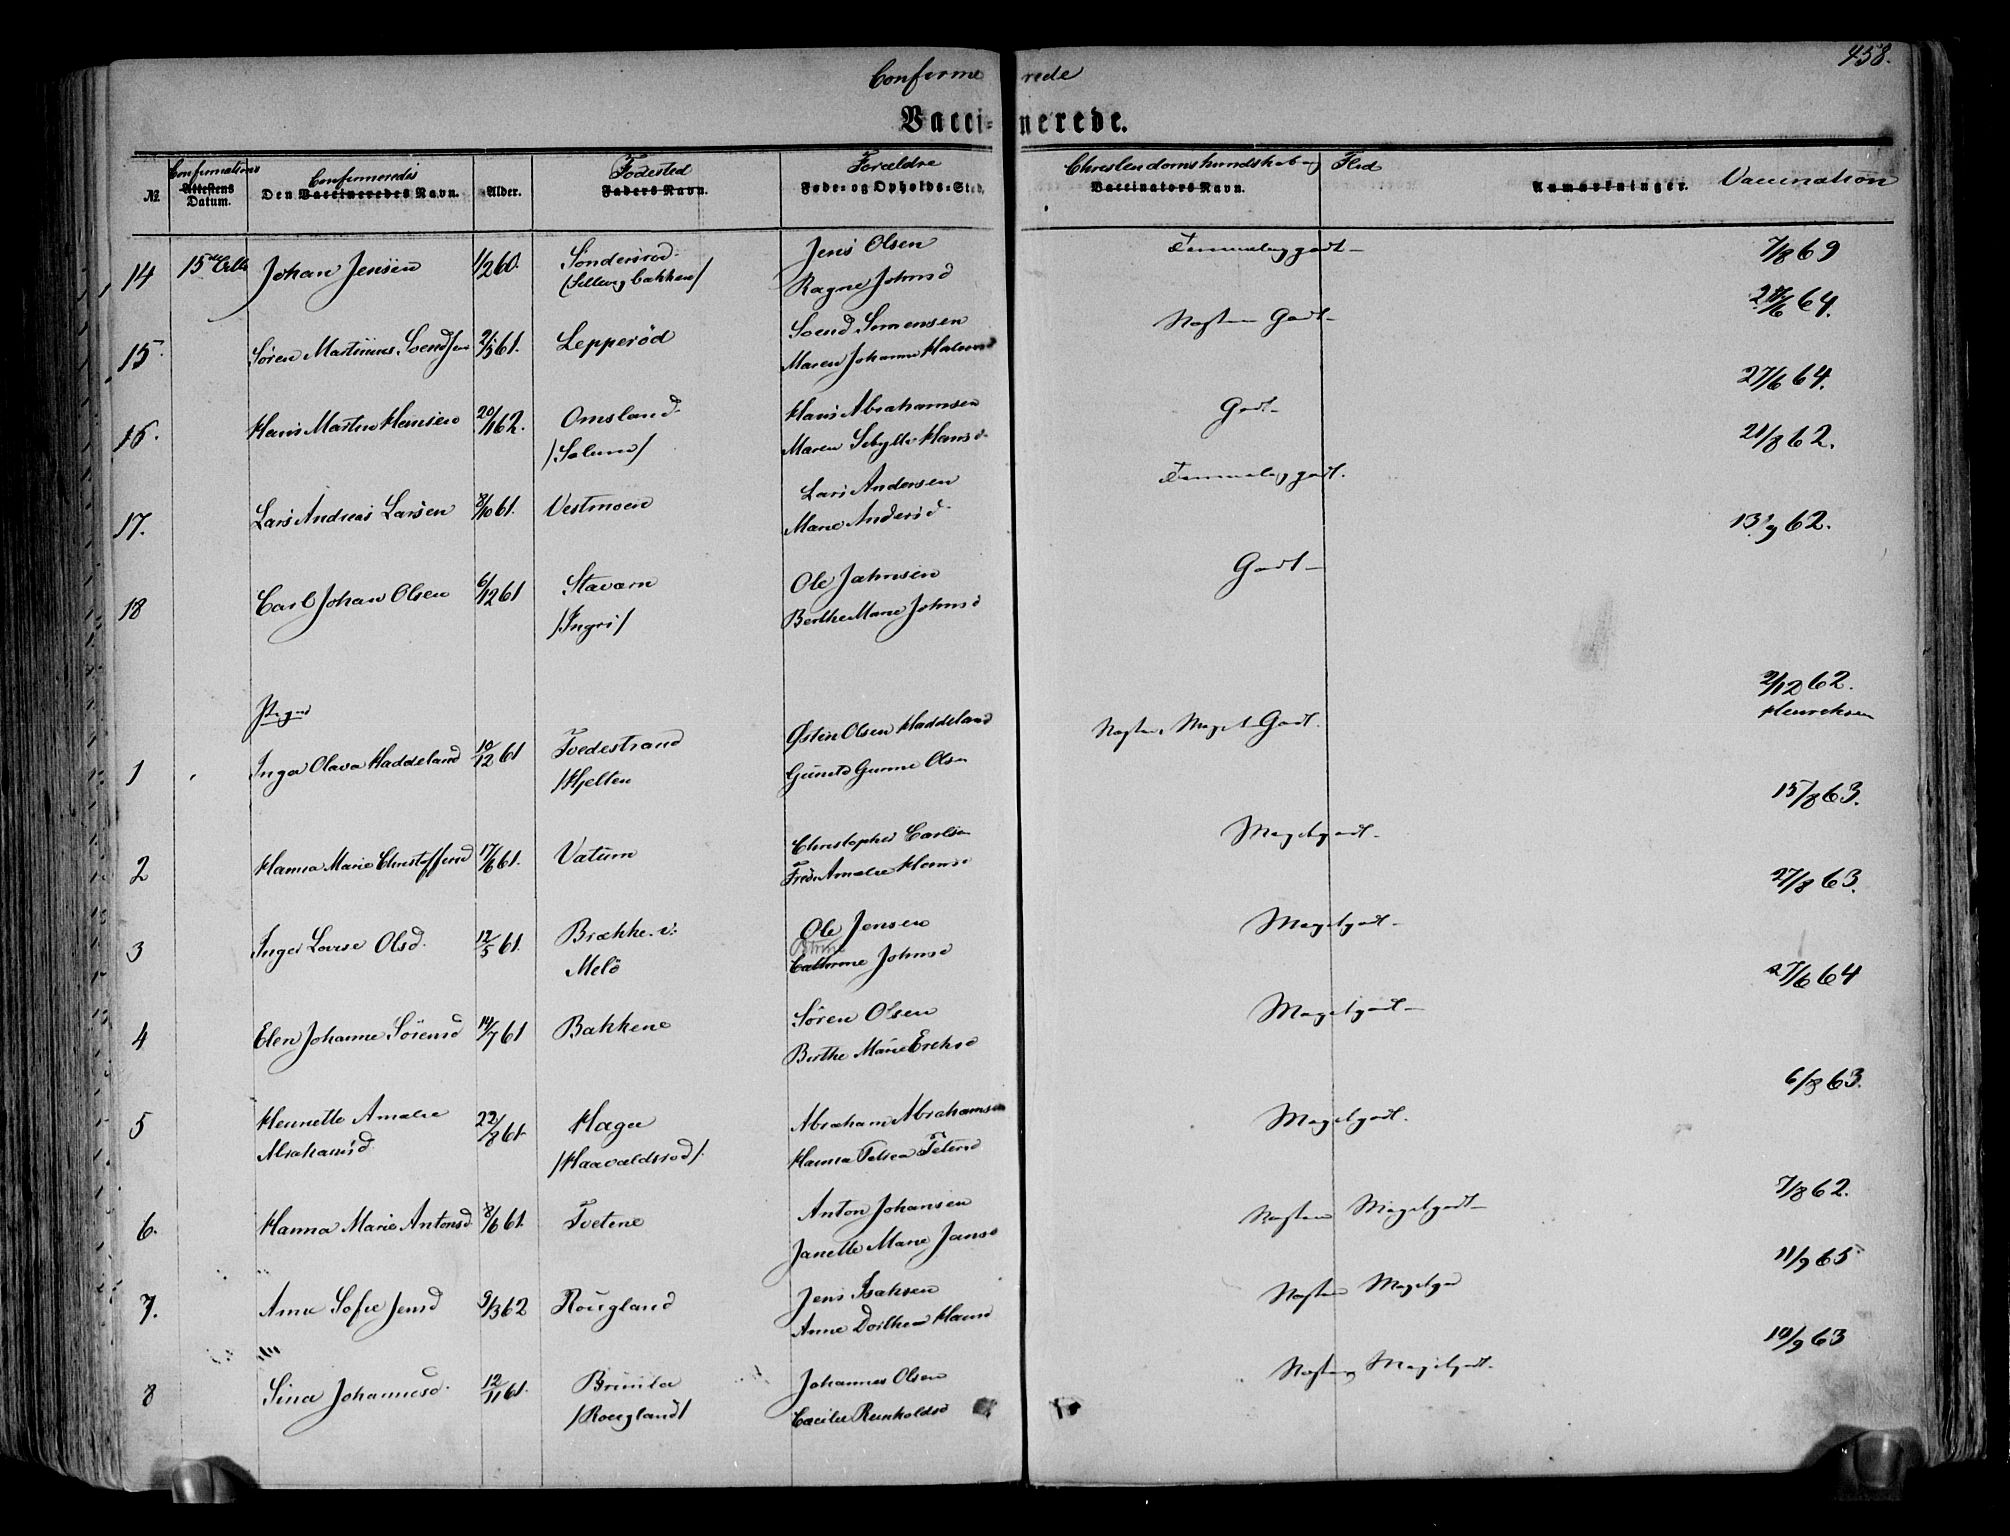 458.
Confirmerede
Vaccinerede.
Confirmations Confirmeredes Fødested Forældre Christendomskundskab og Flid Vaccination
№ Attestens Datum. Den Vaccineredes Navn. Alder. Faders Navn. Føde- og Opholds-Sted. Vaccinators Navn. Anmærkninger.
14 15de Johan Jensen 1/2 60. Sondersrød Jens Olsen Temmelig godt 7/8 69
Ragne Johnsd
15. Søren Martinius Svendsen 2/5 61. Lepperød Svend Sørensen Næsten Godt 28/6 64.
Maren Johanne
16. Hans Martin Hansen 20/1 62. Omsland Hans Abrahamsen Godt 27/6 64.
/Solum/ Maren Sibylle Hansd
17. Lars Andreas Larsen 8/10 61. Vestmoen Lars Andersen Temmelig godt. 21/8 62.
Marie Andersd
18 Carl Johan Olsen 6/12 61 Staværn Ole Johnsen Godt 13/9 62.
/Ingri/ Berthe Marie Johnsd
Piger
1 Inga Olava Haddeland 10/12 61 Tvedestrand Østen Olsen Haddeland Næsten Meget Godt. 2/12 62.
/Hjelten Gunild Gurine Olsen Henriksen
2 Hanna Marie Christoffersd 17/6 61. Vatum Christopher Carlsen Meget godt 15/8 63.
Amalie Hansd
3 Inger Lovise Olsd. 12/5 61. Brække v. Ole Jensen Meget godt 27/8 63.
Melö Cathrine Johnsd
4 Elen Johanne Sörensd 14/7 61 Bakkene Sören Olsen Meget godt 27/6 64
Berthe Marie Ericksd
5 Henriette Amalie 22/8 61. Haga Abraham Abrahamsen Meget godt. 6/8 63.
Abrahamsd /Haavaldsrød/. Hanna
6. Hanna Marie Antonsd 8/6 61. Tvetene Anton Johansen Næsten Meget godt 7/8 62.
Janette Marie Jansd
7. Anne Sofie Jensd 9/3 62 Rougland Jens Isaksen Næsten Meget 11/9 65
Anne Dorthea Hansd
8 Sina Johannesd. 12/11 61. Brunla Johannes Olsen Næsten Meget godt 10/9 63
/Rougland/ Cæcilie Reinholdsd